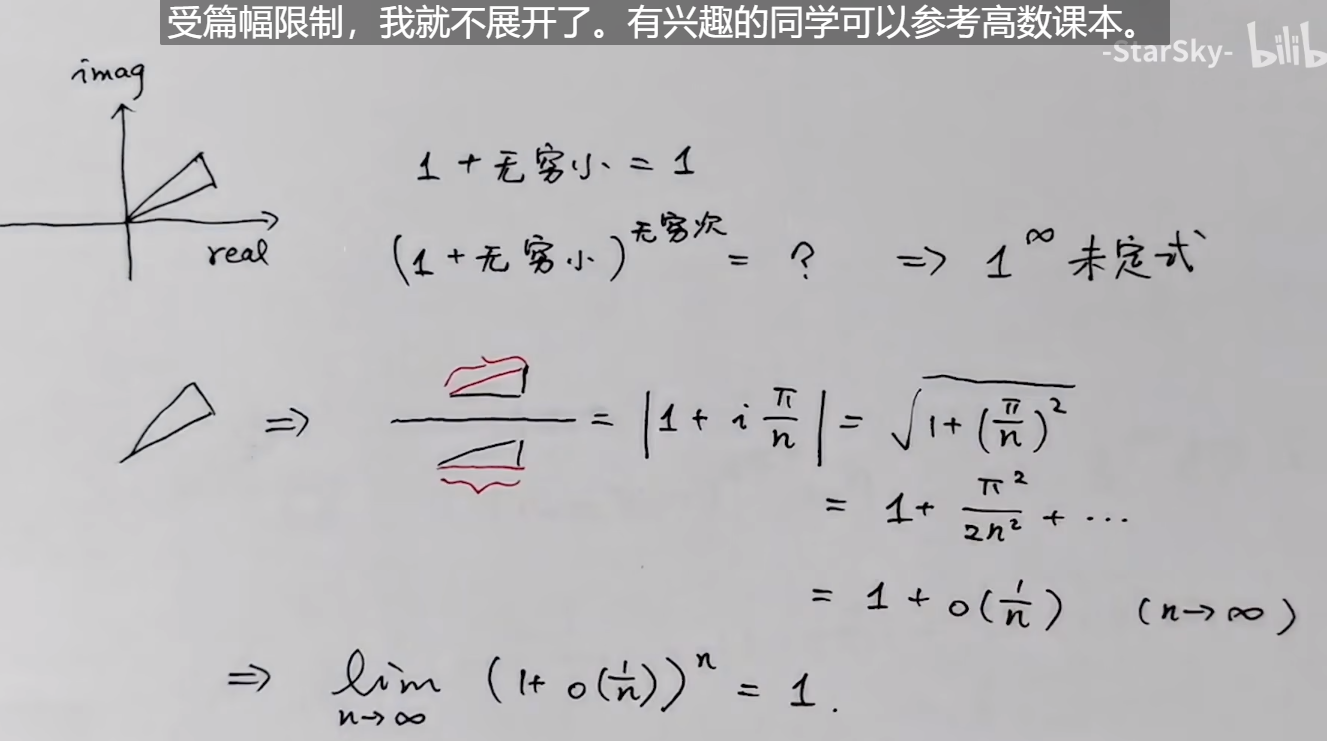 受篇幅限制，我就不展开了。有兴趣的同学可以参考高数课本。
-StarSky- bilib
imag
real
1 + 无穷小 = 1
(1 + 无穷小)^无穷次 = ? => 1^∞ 未定式
=> = |1 + i π/n| = √(1+(π/n)^2)
= 1 + π^2/2n^2 + ...
= 1 + o(1/n) (n→∞)
=> lim n→∞ (1+ o(1/n))^n = 1.